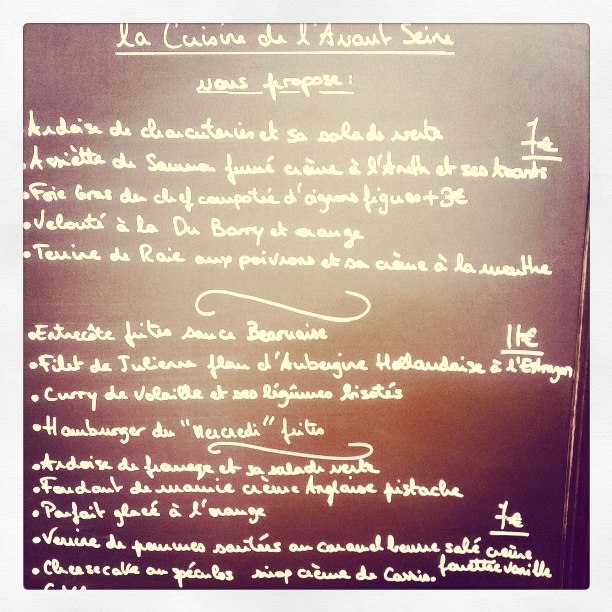 la Cuisine de l'Avant Seine
vous propose:
Ardoise de charcuteries et sa salade verte 7€
Assiètte de Saumon fumé crème à l'Aneth et ses toasts
Foie Gras du chef compotée d'oignons figues +3€
Velouté à la Du Barry et orange
Terrine de Raie aux poivrons et sa crème à la menthe
Entrecôte frites sauce Bearnaise 11€
Filet de Julienne flan d'Aubergine Hollandaise à l'Estragon
Curry de volaille et ses légumes risotés
Hamburger du "Mercredi" frites
Ardoise de fromage et sa salade verte
Fondant de mamie crème Anglaise pistache
Parfait glacé à l'orange 7€
Verrine de pommes sautées au caramel beurre salé crème
fouettée vanille
Cheesecake au spéculos sirop crème de Cassis.